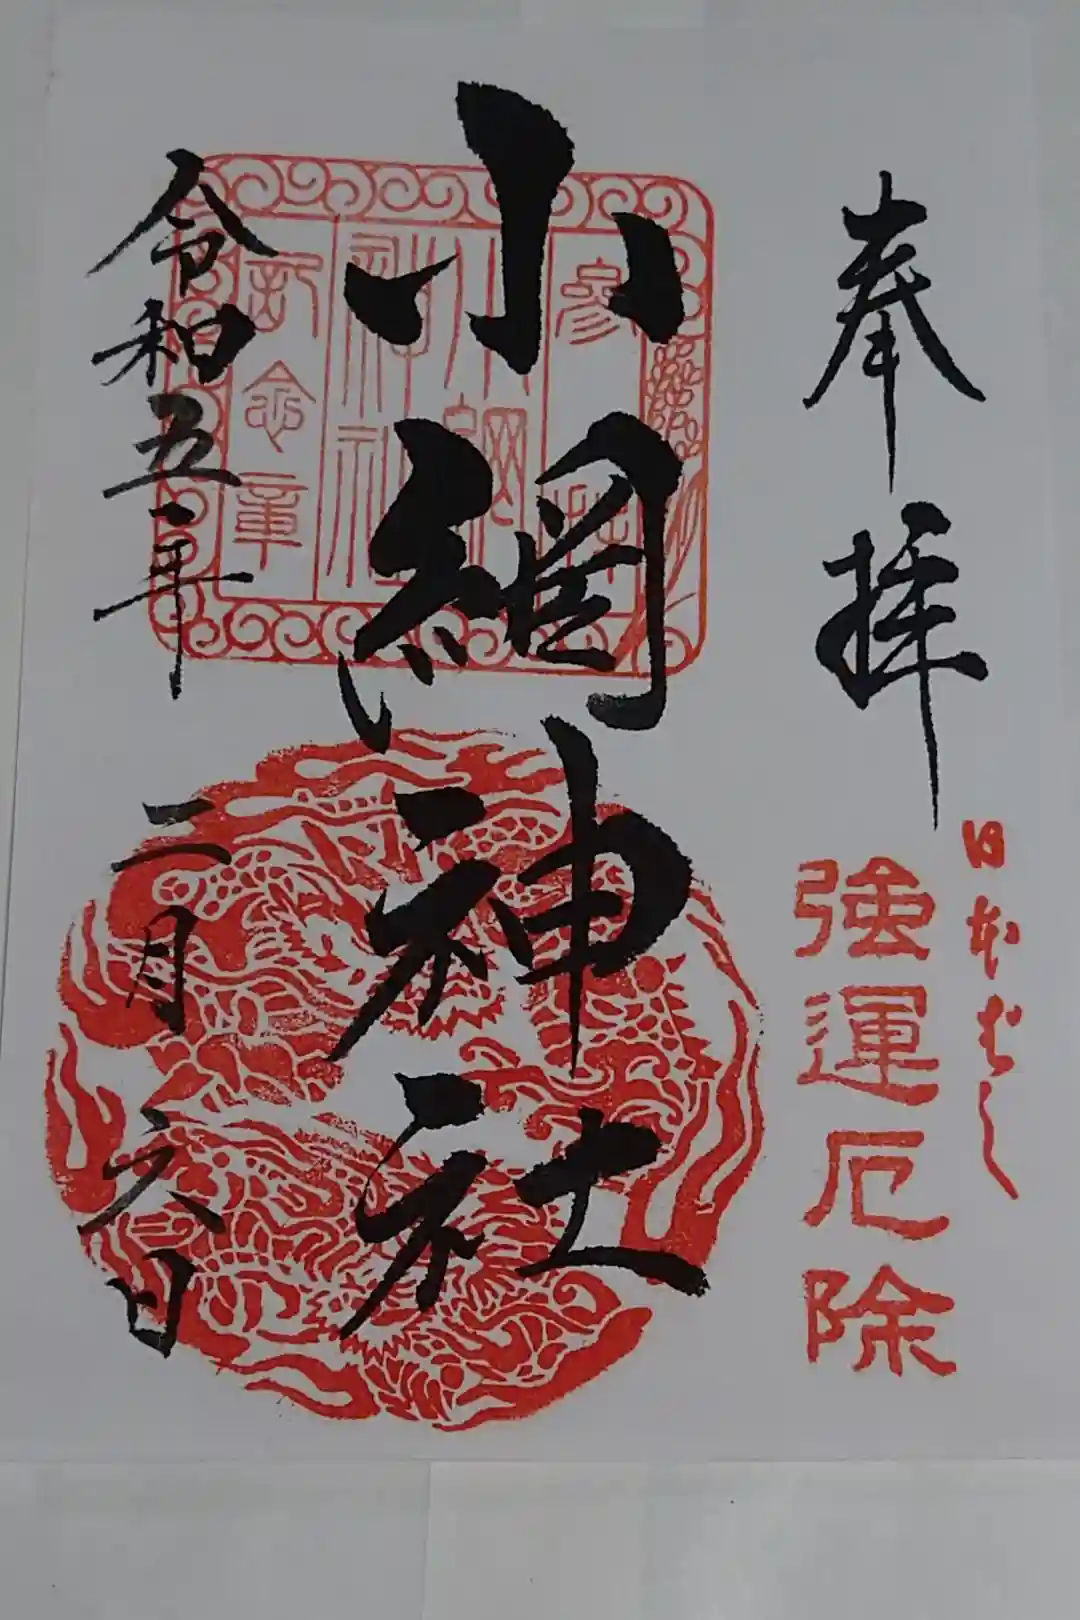 奉拝
日本ばし
強運厄除
小網神社
參拜
小網
神社
記念章
令和五年
二月六日